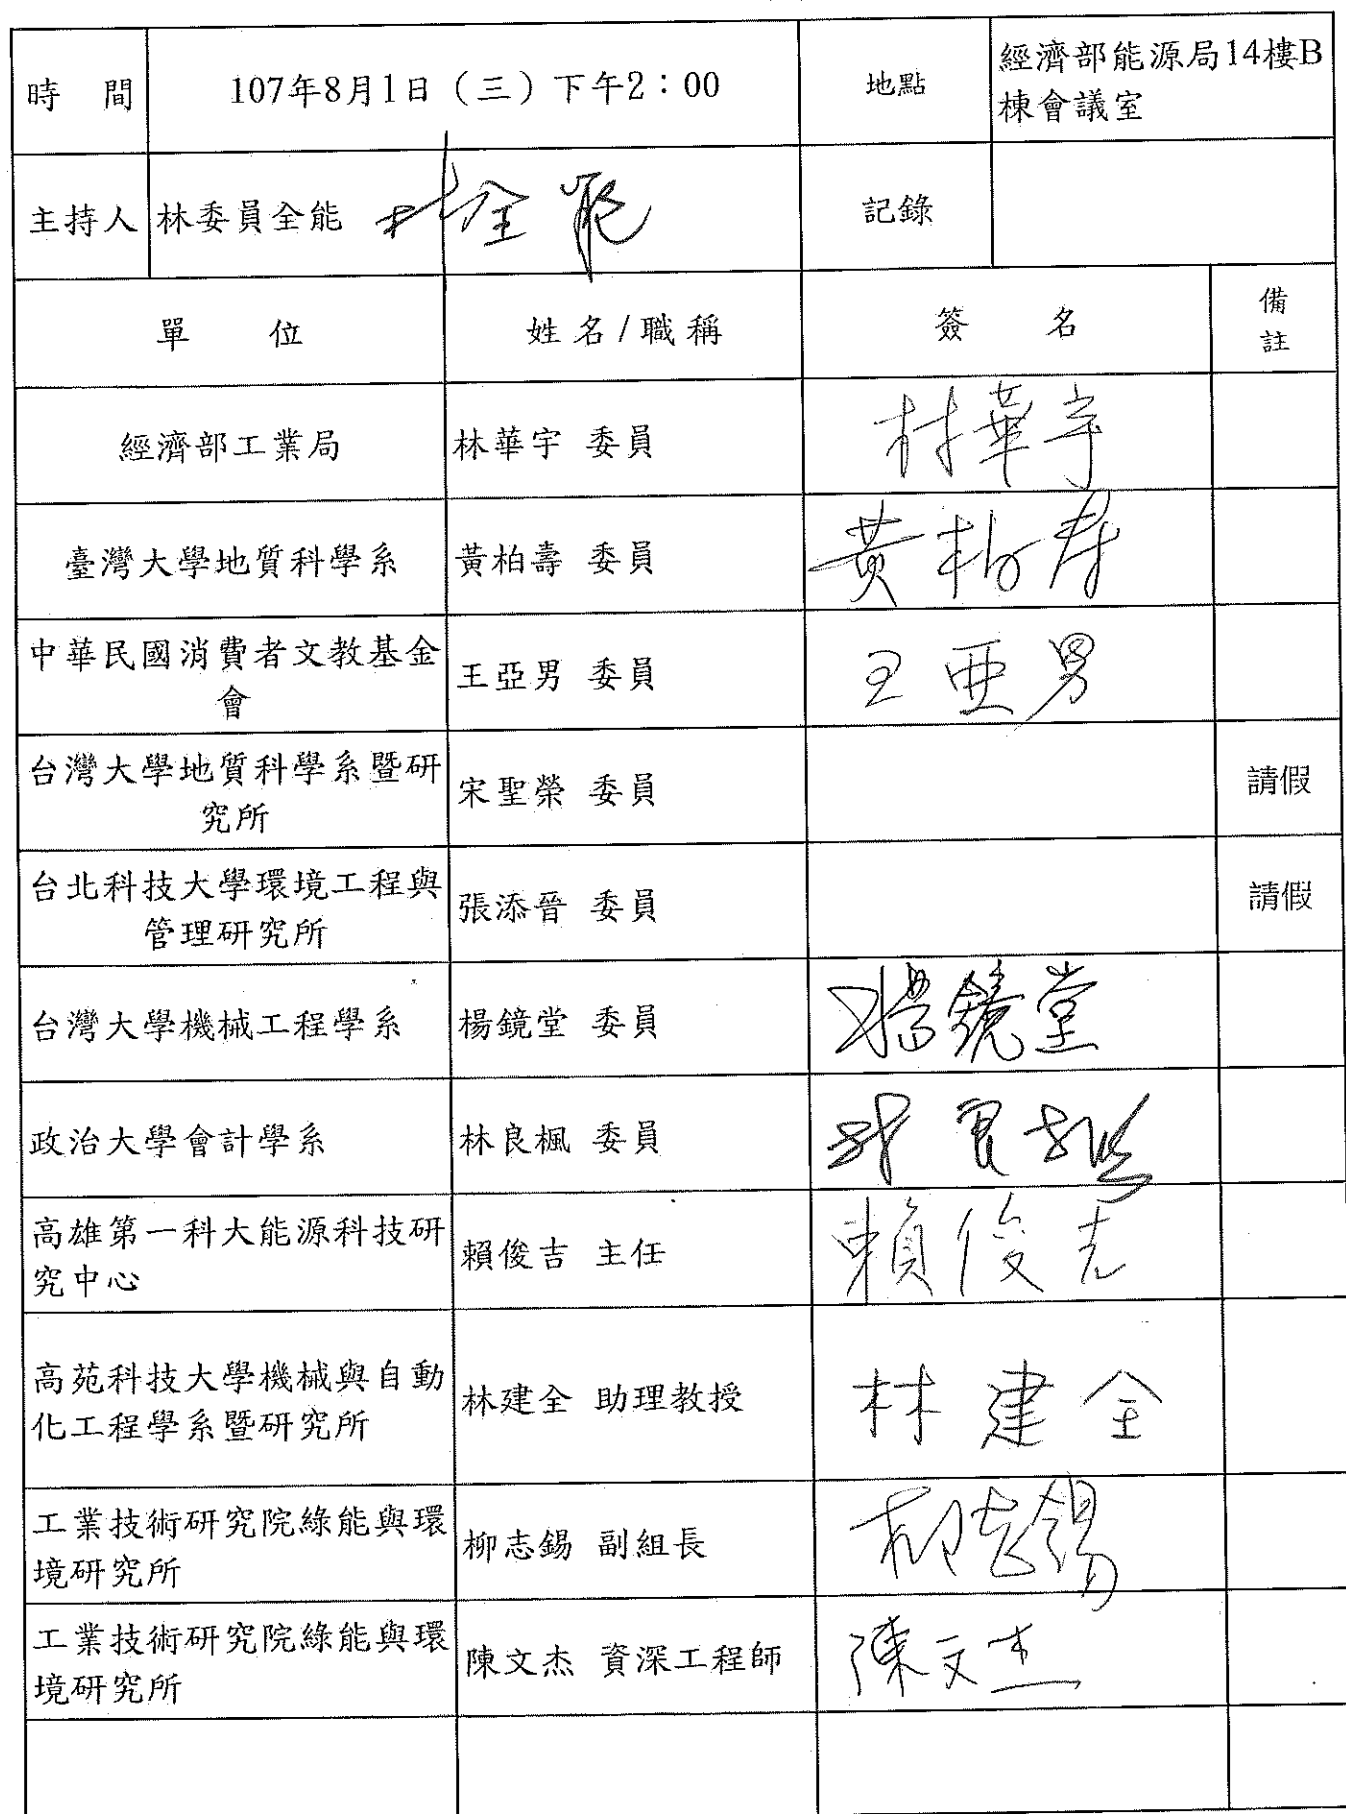 時 間
107年8月1日（三）下午2：00
地點
經濟部能源局14樓B
棟會議室
主持人
林委員全能
林全能
記錄
單 位
姓名/職稱
簽 名
備
註
經濟部工業局
林華宇 委員
林華宇
臺灣大學地質科學系
黃柏壽 委員
黃柏壽
中華民國消費者文教基金
會
王亞男 委員
王亞男
台灣大學地質科學系暨研
究所
宋聖榮 委員
請假
台北科技大學環境工程與
管理研究所
張添晉 委員
請假
台灣大學機械工程學系
楊鏡堂 委員
楊鏡堂
政治大學會計學系
林良楓 委員
林良楓
高雄第一科大能源科技研
究中心
賴俊吉 主任
賴俊吉
高苑科技大學機械與自動
化工程學系暨研究所
林建全 助理教授
林建全
工業技術研究院綠能與環
境研究所
柳志錫 副組長
柳志錫
工業技術研究院綠能與環
境研究所
陳文杰 資深工程師
陳文杰